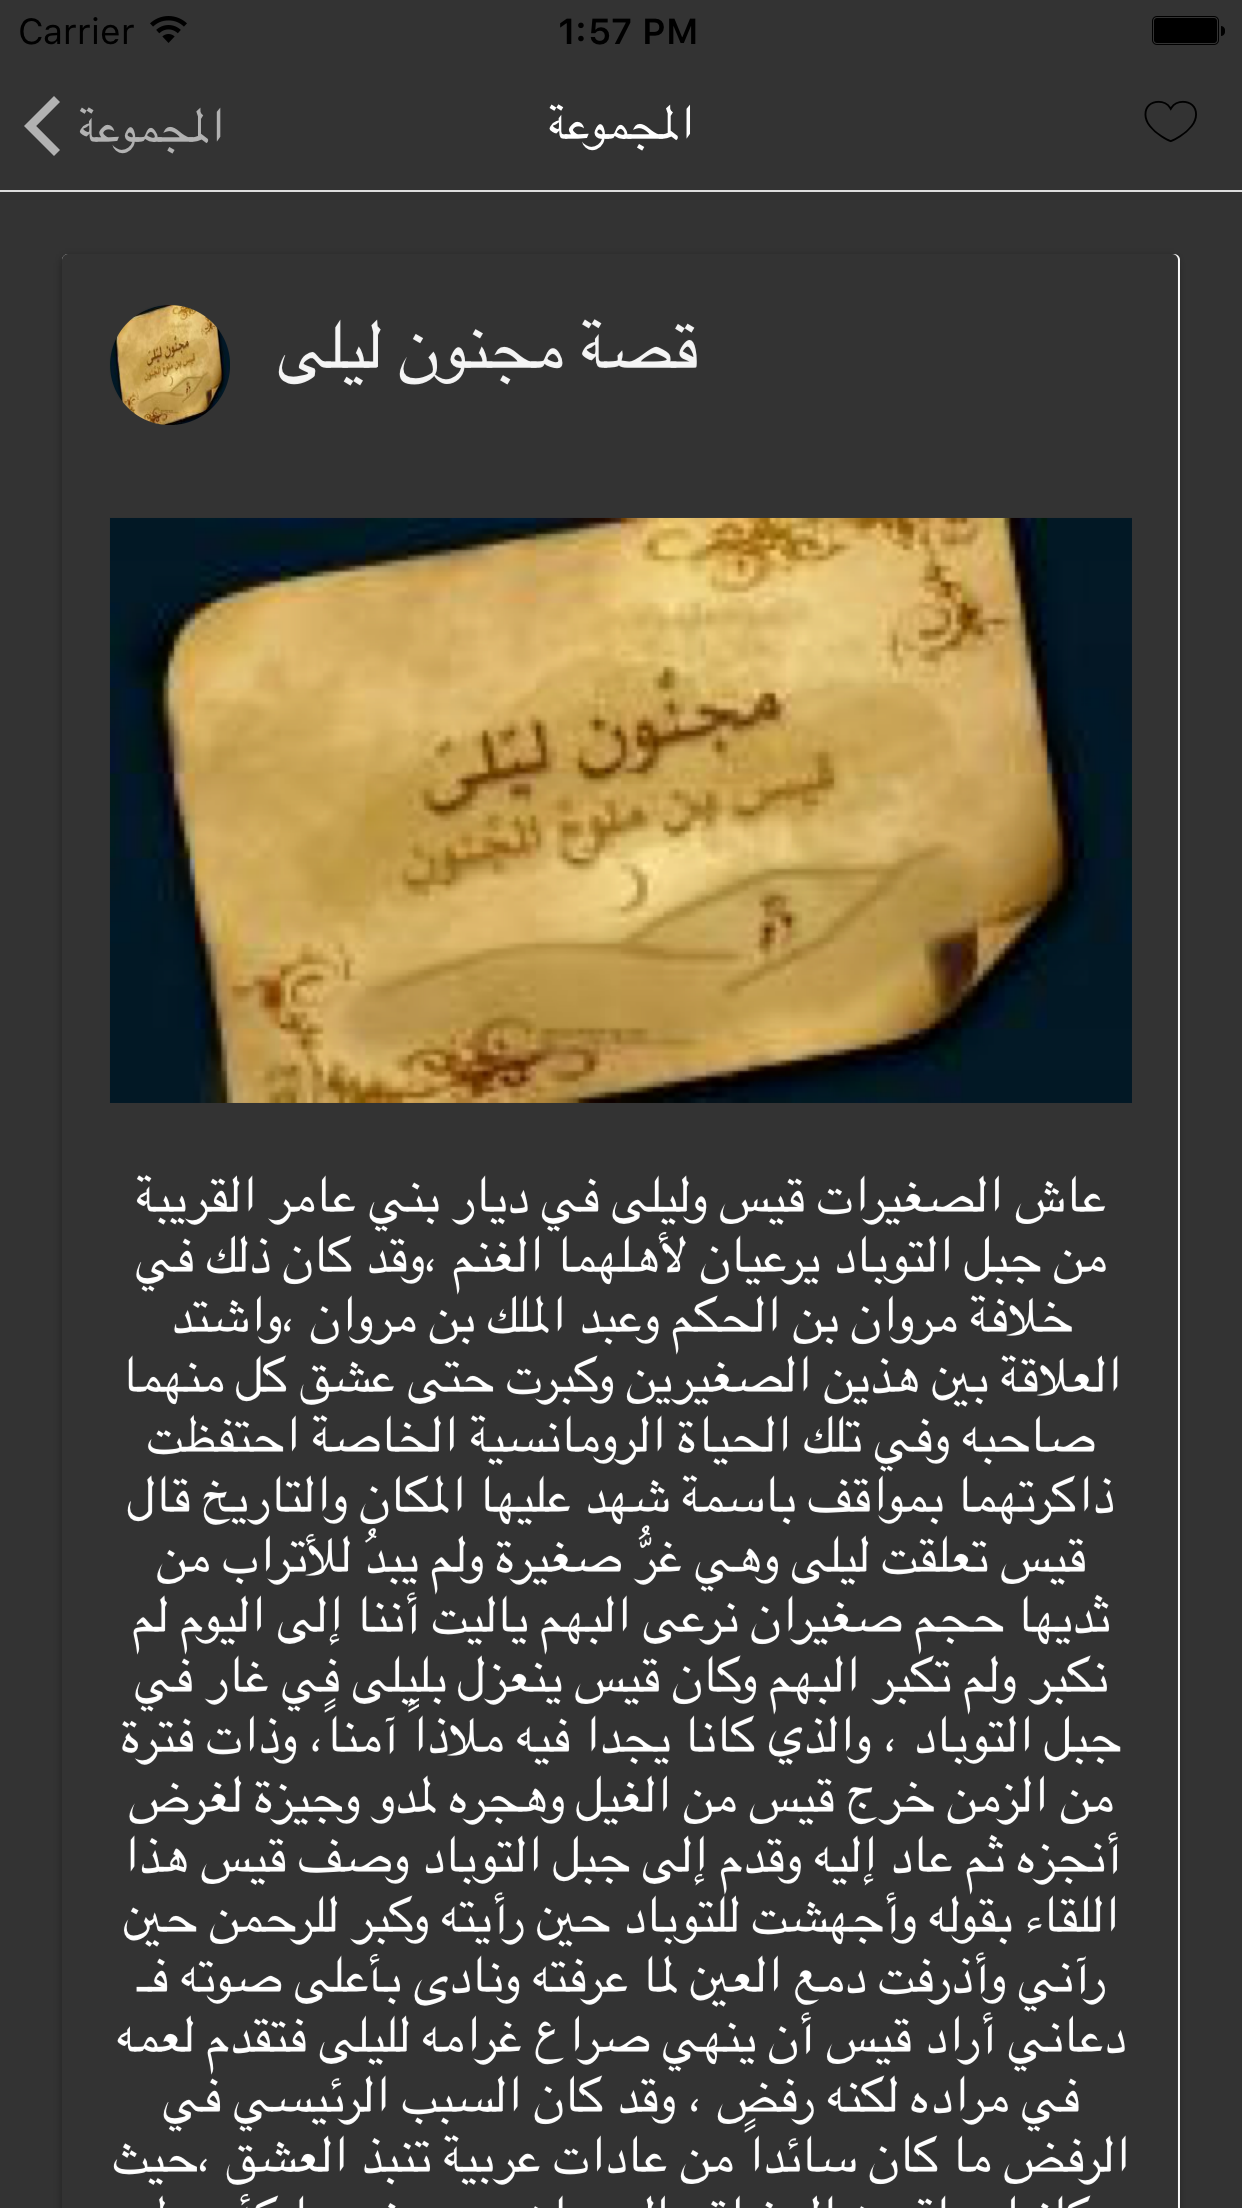 Carrier 1:57 PM
المجموعة المجموعة
قصة مجنون ليلى
مجنُون ليَلىَ
بن ملوح المجنون
عاش الصغيرات قيس وليلى في ديار بني عامر القريبة
من جبل التوباد يرعيان لأهلهما الغنم ،وقد كان ذلك في
خلافة مروان بن الحكم وعبد الملك بن مروان ،واشتد
العلاقة بين هذين الصغيرين وكبرت حتى عشق كل منهما
صاحبه وفي تلك الحياة الرومانسية الخاصة احتفظت
ذاكرتهما بمواقف باسمة شهد عليها المكان والتاريخ قال
قيس تعلقت ليلى وهي غرُّ صغيرة ولم يبدُ للأتراب من
ثديها حجم صغيران نرعى البهم ياليت أننا إلى اليوم لم
نكبر ولم تكبر البهم وكان قيس ينعزل بليلى في غار في
جبل التوباد ، والذي كانا يجدا فيه ملاذاً آمناً، وذات فترة
من الزمن خرج قيس من الغيل وهجره لمدو وجيزة لغرض
أنجزه ثم عاد إليه وقدم إلى جبل التوباد وصف قيس هذا
اللقاء بقوله وأجهشت للتوباد حين رأيته وكبر للرحمن حين
رآني وأذرفت دمع العين لما عرفته ونادى بأعلى صوته فـ
دعاني أراد قيس أن ينهي صراع غرامه لليلى فتقدم لعمه
في مراده لكنه رفض ، وقد كان السبب الرئيسي في
الرفض ما كان سائداً من عادات عربية تنبذ العشق ،حيث